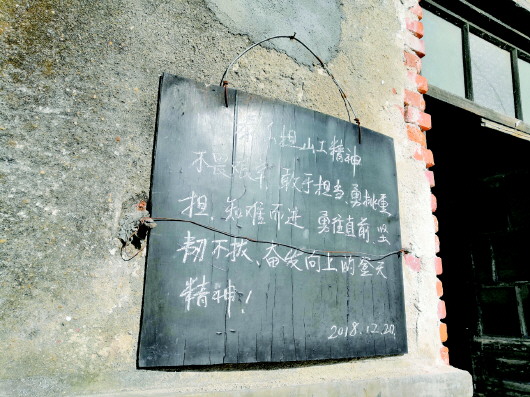 担山工精神
不畏艰辛,敢于担当,勇挑重
担,知难而进,勇往直前,坚
韧不拔、奋发向上的
精神!
2018.12.20